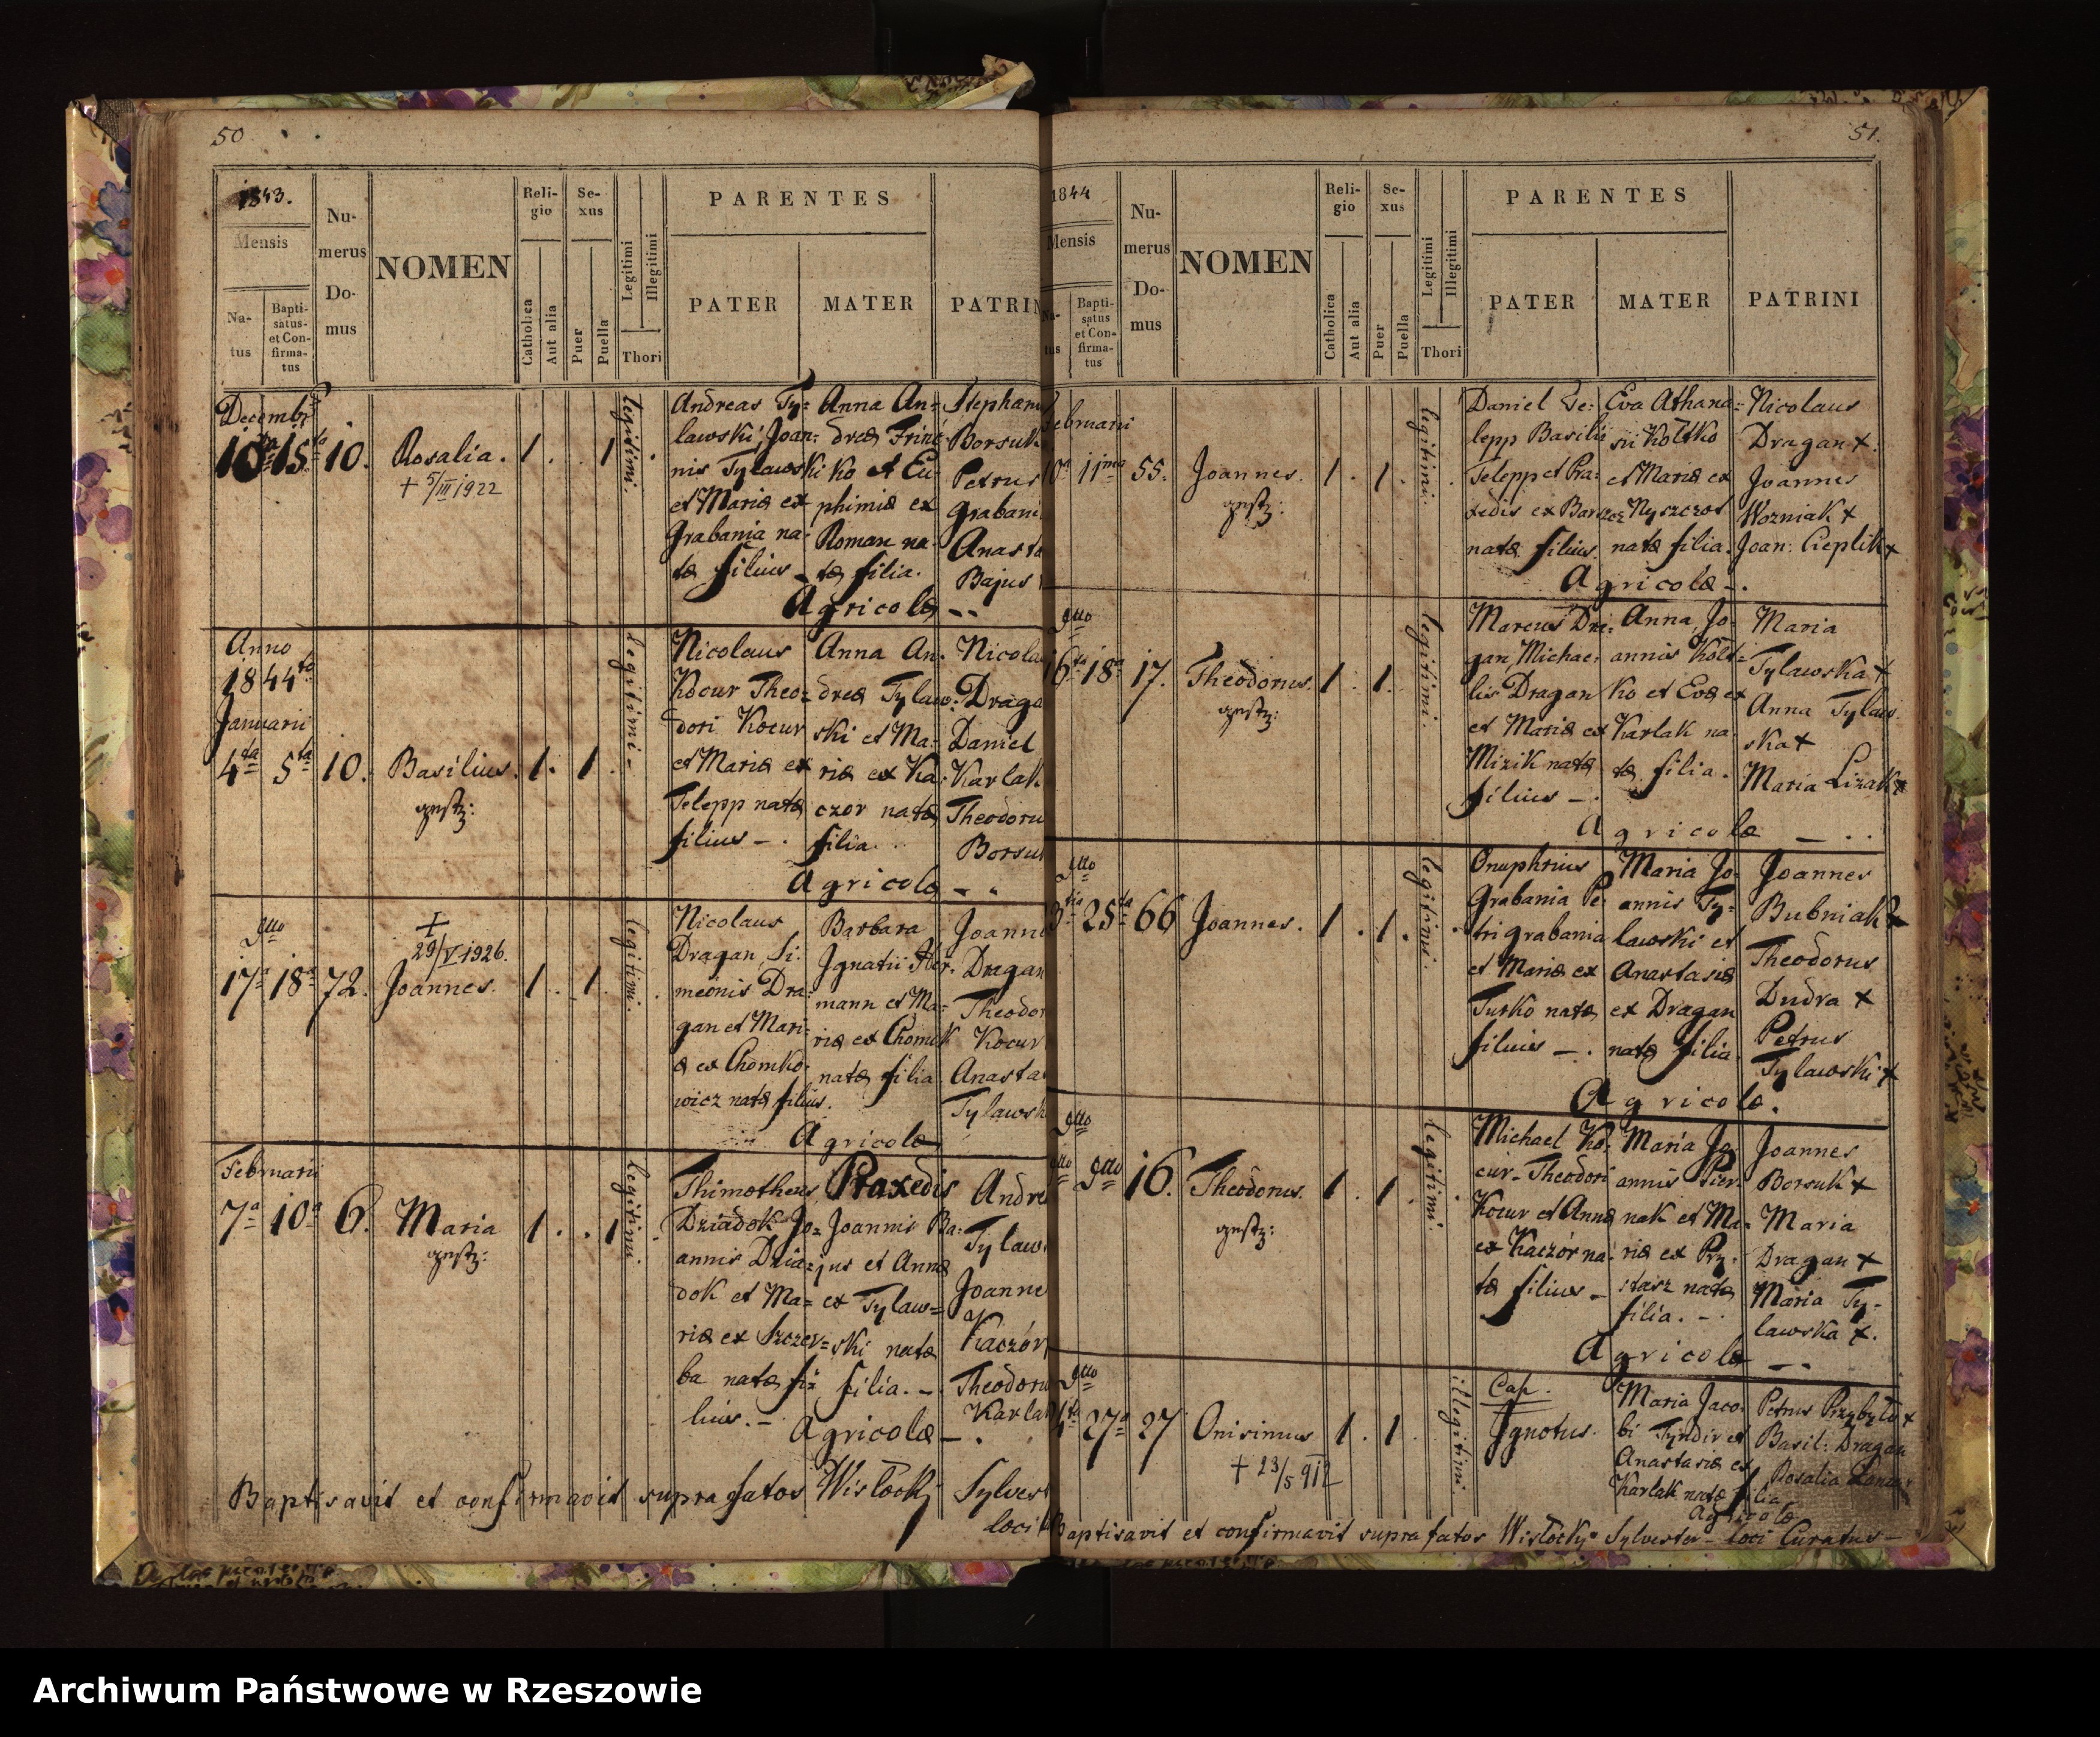 50
1843.
Mensis
Na-
tus
Bapti-
satus-
et Con-
firma-
tus
Nu-
merus
Do-
mus
NOMEN
Reli-
gio
Catholica
Aut alia
Se-
xus
Puer
Puella
Legitimi
Illegitimi
Thori
PARENTES
PATER
MATER
PATRIN
Decembr
10 15 10. Rosalia. 1 . . 1 legitimi.
+ 5/III 1922
Andreas Ty=
lawski, Joan=
nis Tylawski
et Mariæ ex
Grabania na-
tæ filius -
Anna An=
dreæ Frinć
ko et Eu
phimiæ ex
Roman na-
tæ filia.
Stephan
Borsuk
Petrus
Grabani
Anasta
Bajus
Agricolæ - -
Anno
1844ta
Januarii
4ta 5ta 10. Basilius. 1 . 1 . legitimi -
gestz:
Nicolaus
Kocur Theo=
dori Kocur
et Mariæ ex
Telepp natæ
filius - .
Anna An:
dreæ Tylaw:
ski et Ma-
riæ ex Ka-
czor natæ
filia.
Nicola
Draga
Daniel
Karlak
Theodoru
Borsu
Agricolæ - .
dtto
17a 18a 72. Joannes. 1 . 1 . legitimi.
+
29/V 1926.
Nicolaus
Dragan, Si:
meonis Dra:
gan et Mari:
æ ex Chomko:
wicz natæ filius.
Barbara
Ignatii Her.
mann et Ma-
riæ ex Chomik
natæ filia
Joann
Dragan
Theodor
Kocur
Anasta
Tylawsk
Agricolæ
Februarii
7a 10a 6. Maria 1 . . 1 legitimi.
gestz:
Thimotheus
Dziadok Jo=
annis Dzia=
dok et Ma=
riæ ex Szczer=
ba natæ fi=
lius. -
Praxedis
Joannis Ba:
jus et Annæ
ex Tylaw=
ski natæ
filia. - .
Andre
Tylaw
Joanne
Kaczór
Theodoru
Karla
Agricolæ - .
Baptisavit et confirmavit suprafatos Wisłocki Sylvest
loci
51.
1844
Mensis
Na-
tus
Bapti-
satus
et Con-
firma-
tus
Nu-
merus
Do-
mus
NOMEN
Reli-
gio
Catholica
Aut alia
Se-
xus
Puer
Puella
Legitimi
Illegitimi
Thori
PARENTES
PATER
MATER
PATRINI
ebruarii
10a 11ma 55. Joannes. 1 . 1 . legitimi.
gestz:
Daniel Te:
lepp Basilii
Telepp et Pra:
xedis ex Barszcz
natæ filius.
Eva Athana=
sii Kołtko
et Mariæ ex
Nyszczot
natæ filia.
Nicolaus
Dragan +.
Joannes
Wozniak +
Joan: Cieplik +
Agricolæ - .
dtto
16ta 18a 17. Theodorus. 1 . 1 . legitimi.
gestz:
Marcus Dra:
gan Michae:
lis Dragan
et Mariæ ex
Mizik natæ
filius - .
Anna, Jo-
annis Kołt=
ko et Evæ ex
Karlak na
tæ filia.
Maria
Tylawska +
Anna Tylaw-
ska +
Maria Lizak +
Agricolæ - . .
dtto
3tia 25ta 66 Joannes. 1 . 1 . legitimi.
Onuphrius
Grabania Pe-
tri grabania
et Mariæ ex
Turko natæ
filius - .
Maria Jo-
annis Ty=
lawski et
Anastasiæ
ex Dragan
natæ filia.
Joannes
Bubniak +
Theodorus
Dudra +
Petrus
Tylawski +
Agricolæ.
dtto
dtto dtto 16. Theodorus. 1 . 1 . legitimi.
gestz:
Michael Ko-
cur - Theodori
Kocur et Annæ
ex Kaczór na
tæ filius -
Maria Jo-
annis Pier-
nak et Ma-
riæ ex Pry-
stasz natæ
filia. - .
Joannes
Borsuk +
Maria
Dragan +
Maria Ty-
lawska +.
Agricolæ - .
dtto
27a 27 Onisimus 1 . 1 . illegitimi.
+ 23/5 912
Cap.
Ignotus.
Maria Jaco-
bi Tyndir et
Anastasiæ ex
Karlak natæ filia
Agricolæ
Petrus Przybyło +
Basil: Dragan
Rosalia
Baptisavit et confirmavit suprafatos Wisłocky Sylvester - loci Curatus -
Archiwum Państwowe w Rzeszowie